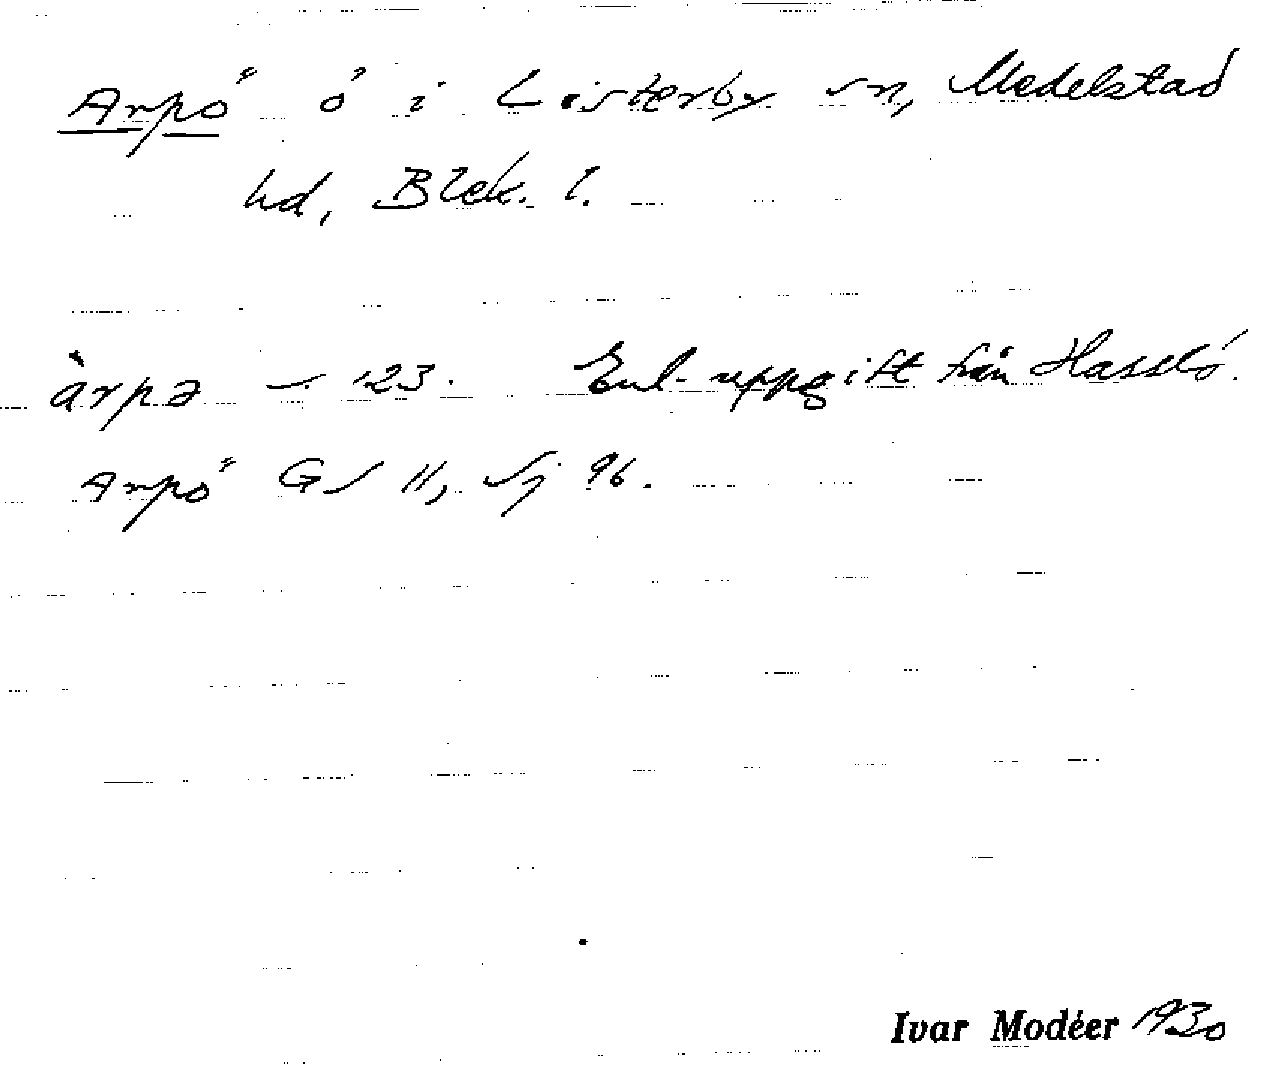 Arpö ö i Listerby sn, Medelstad
hd, Blek. l.
àrpə – '23. Enl. uppgift från Hasslö.
Arpö GS 11, Sj 96.
Ivar Modéer 1930